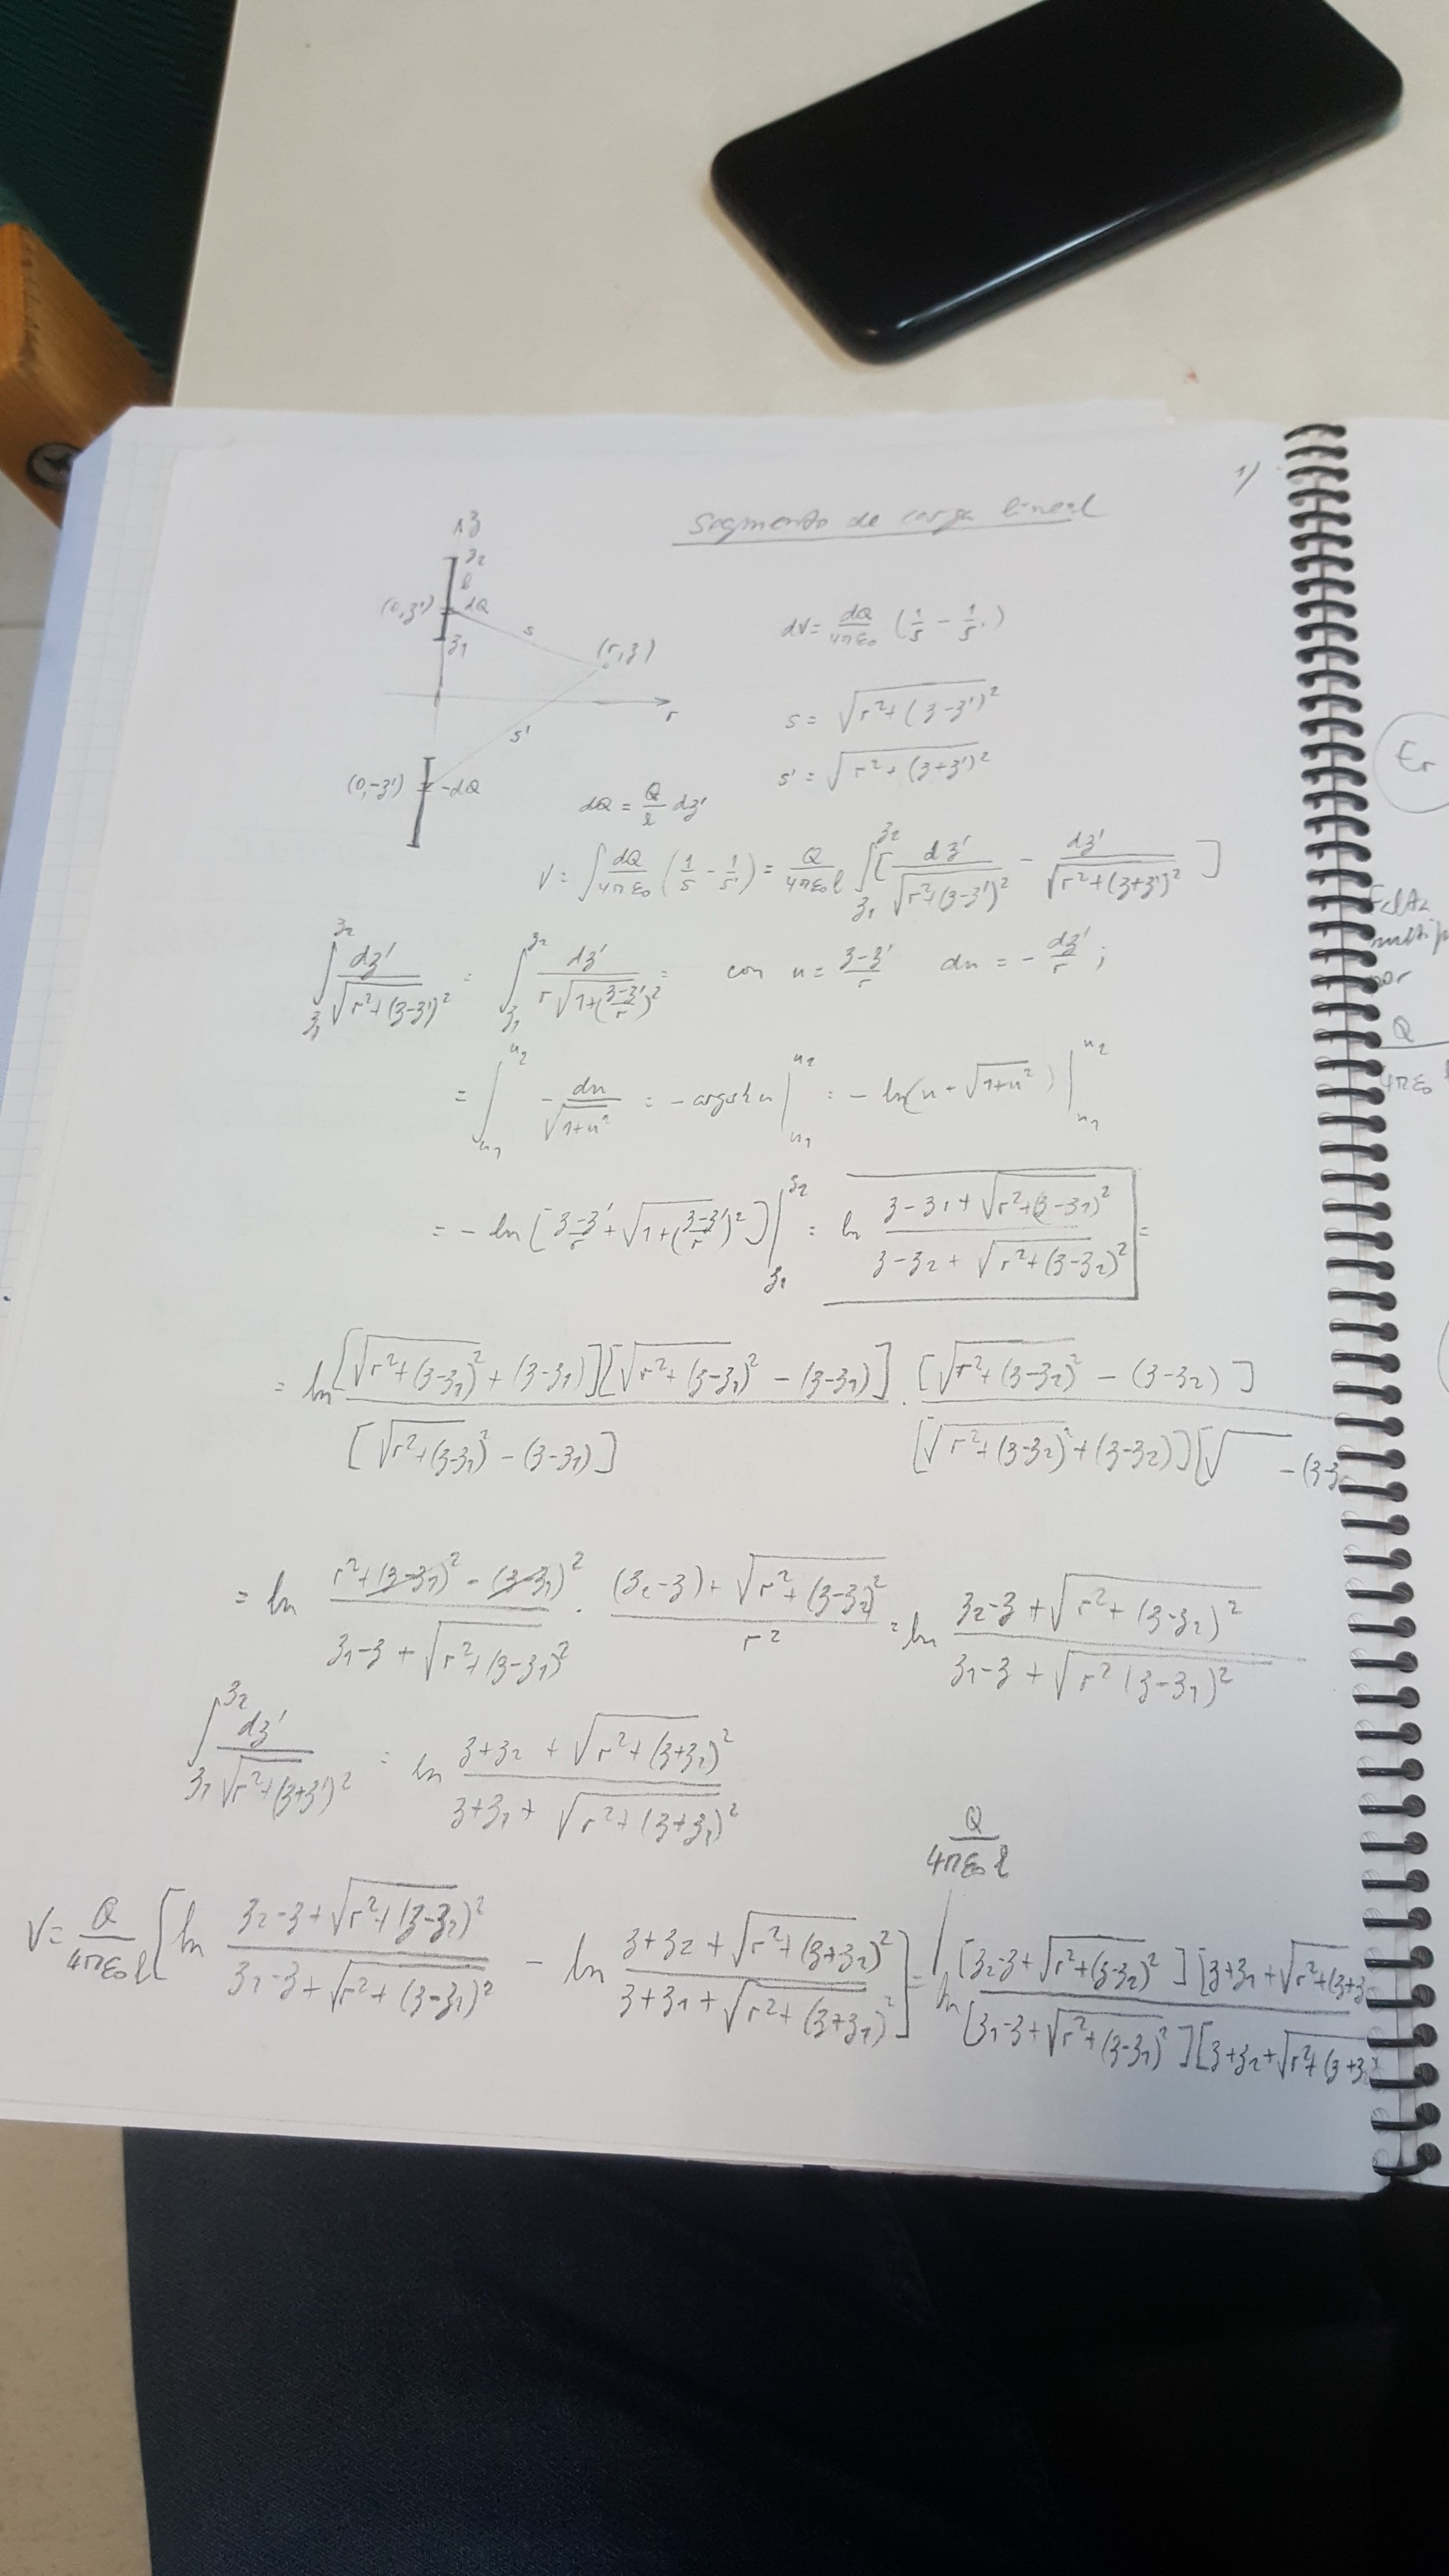 1)
Segmento de carga lineal
z
z2
l
(0,z') dQ
z1
s
(r,z)
r
s'
(0,-z') -dQ
dV = dQ/4πε0 (1/s - 1/s')
s = √(r²+(z-z')²)
s' = √(r²+(z+z')²)
dQ = Q/l dz'
V = ∫ dQ/4πε0 (1/s - 1/s') = Q/4πε0l ∫z1^z2 [ dz'/√(r²+(z-z')²) - dz'/√(r²+(z+z')²) ]
∫z1^z2 dz'/√(r²+(z-z')²) = ∫z1^z2 dz'/(r√(1+((z-z')/r)²)) = con u = (z-z')/r du = - dz'/r ;
= ∫u1^u2 - du/√(1+u²) = - argsh u |u1^u2 = - ln(u + √(1+u²)) |u1^u2
= - ln [ (z-z')/r + √(1+((z-z')/r)²) ] |z1^z2 = ln (z-z1+√(r²+(z-z1)²))/(z-z2+√(r²+(z-z2)²)) =
= ln [√(r²+(z-z1)²)+(z-z1)][√(r²+(z-z1)²)-(z-z1)]/[√(r²+(z-z1)²)-(z-z1)] · [√(r²+(z-z2)²)-(z-z2)]/[√(r²+(z-z2)²)+(z-z2)][√ -(z-z
= ln (r²+(z-z1)²-(z-z1)²)/(z1-z+√(r²+(z-z1)²)) · ((z2-z)+√(r²+(z-z2)²))/r² = ln (z2-z+√(r²+(z-z2)²))/(z1-z+√(r²(z-z1)²))
∫z1^z2 dz'/√(r²+(z+z')²) = ln (z+z2+√(r²+(z+z2)²))/(z+z1+√(r²+(z+z1)²))
Q/4πε0l
V = Q/4πε0l [ ln (z2-z+√(r²+(z-z2)²))/(z1-z+√(r²+(z-z1)²)) - ln (z+z2+√(r²+(z+z2)²))/(z+z1+√(r²+(z+z1)²)) ] = ln [z2-z+√(r²+(z-z2)²)][z+z1+√(r²+(z+z/[z1-z+√(r²+(z-z1)²)][z+z2+√(r²+(z+z
Er
Falta
por
Q/4πε0